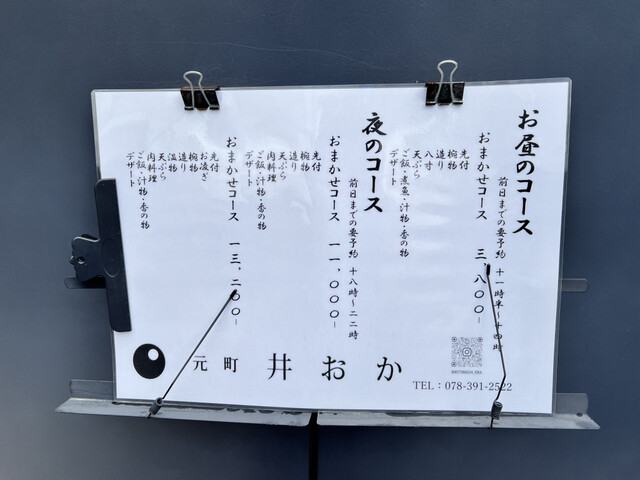 お昼のコース
前日までの要予約 十一時半~十四時
おまかせコース 三,八〇〇-
先付
椀物
造り
八寸
天ぷら
ご飯・煮魚・汁物・香の物
デザート
夜のコース
前日までの要予約 十八時~二二時
おまかせコース 一一,〇〇〇-
先付
椀物
造り
天ぷら
肉料理
ご飯・汁物・香の物
デザート
おまかせコース 一三,二〇〇-
先付
お凌ぎ
椀物
造り
温物
天ぷら
肉料理
ご飯・汁物・香の物
デザート
元町 井おか
TEL:078-391-2522